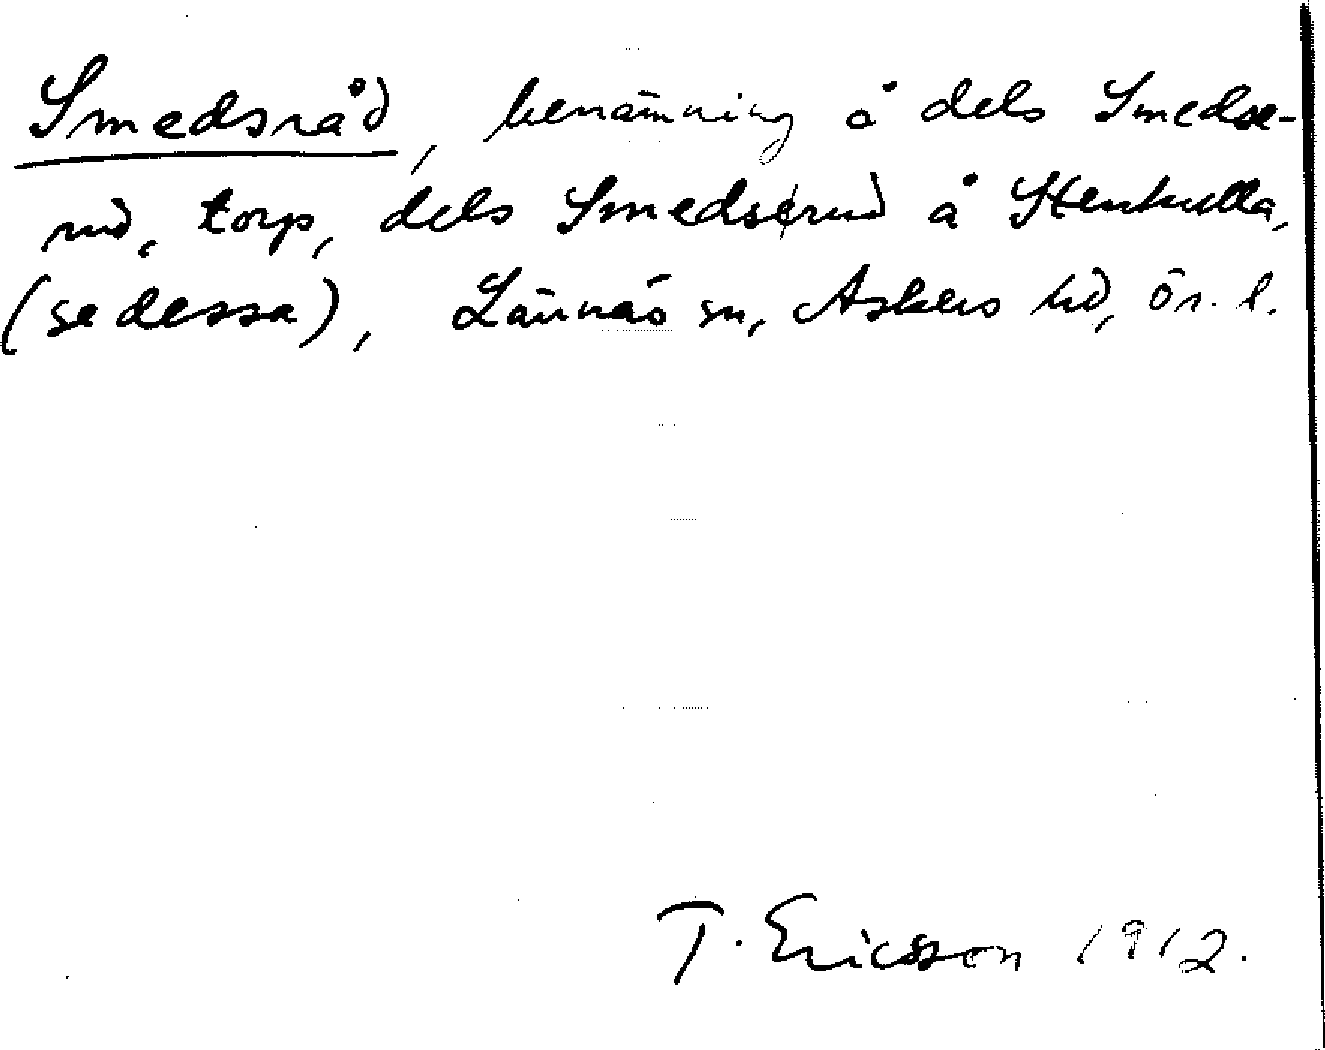 Smedsråd, benämning å dels Smedse-
rud, torp, dels Smedserud å Stenkulla,
(se dessa), Lännäs sn, Askers hd, Ör. l.
T. Ericson 1912.